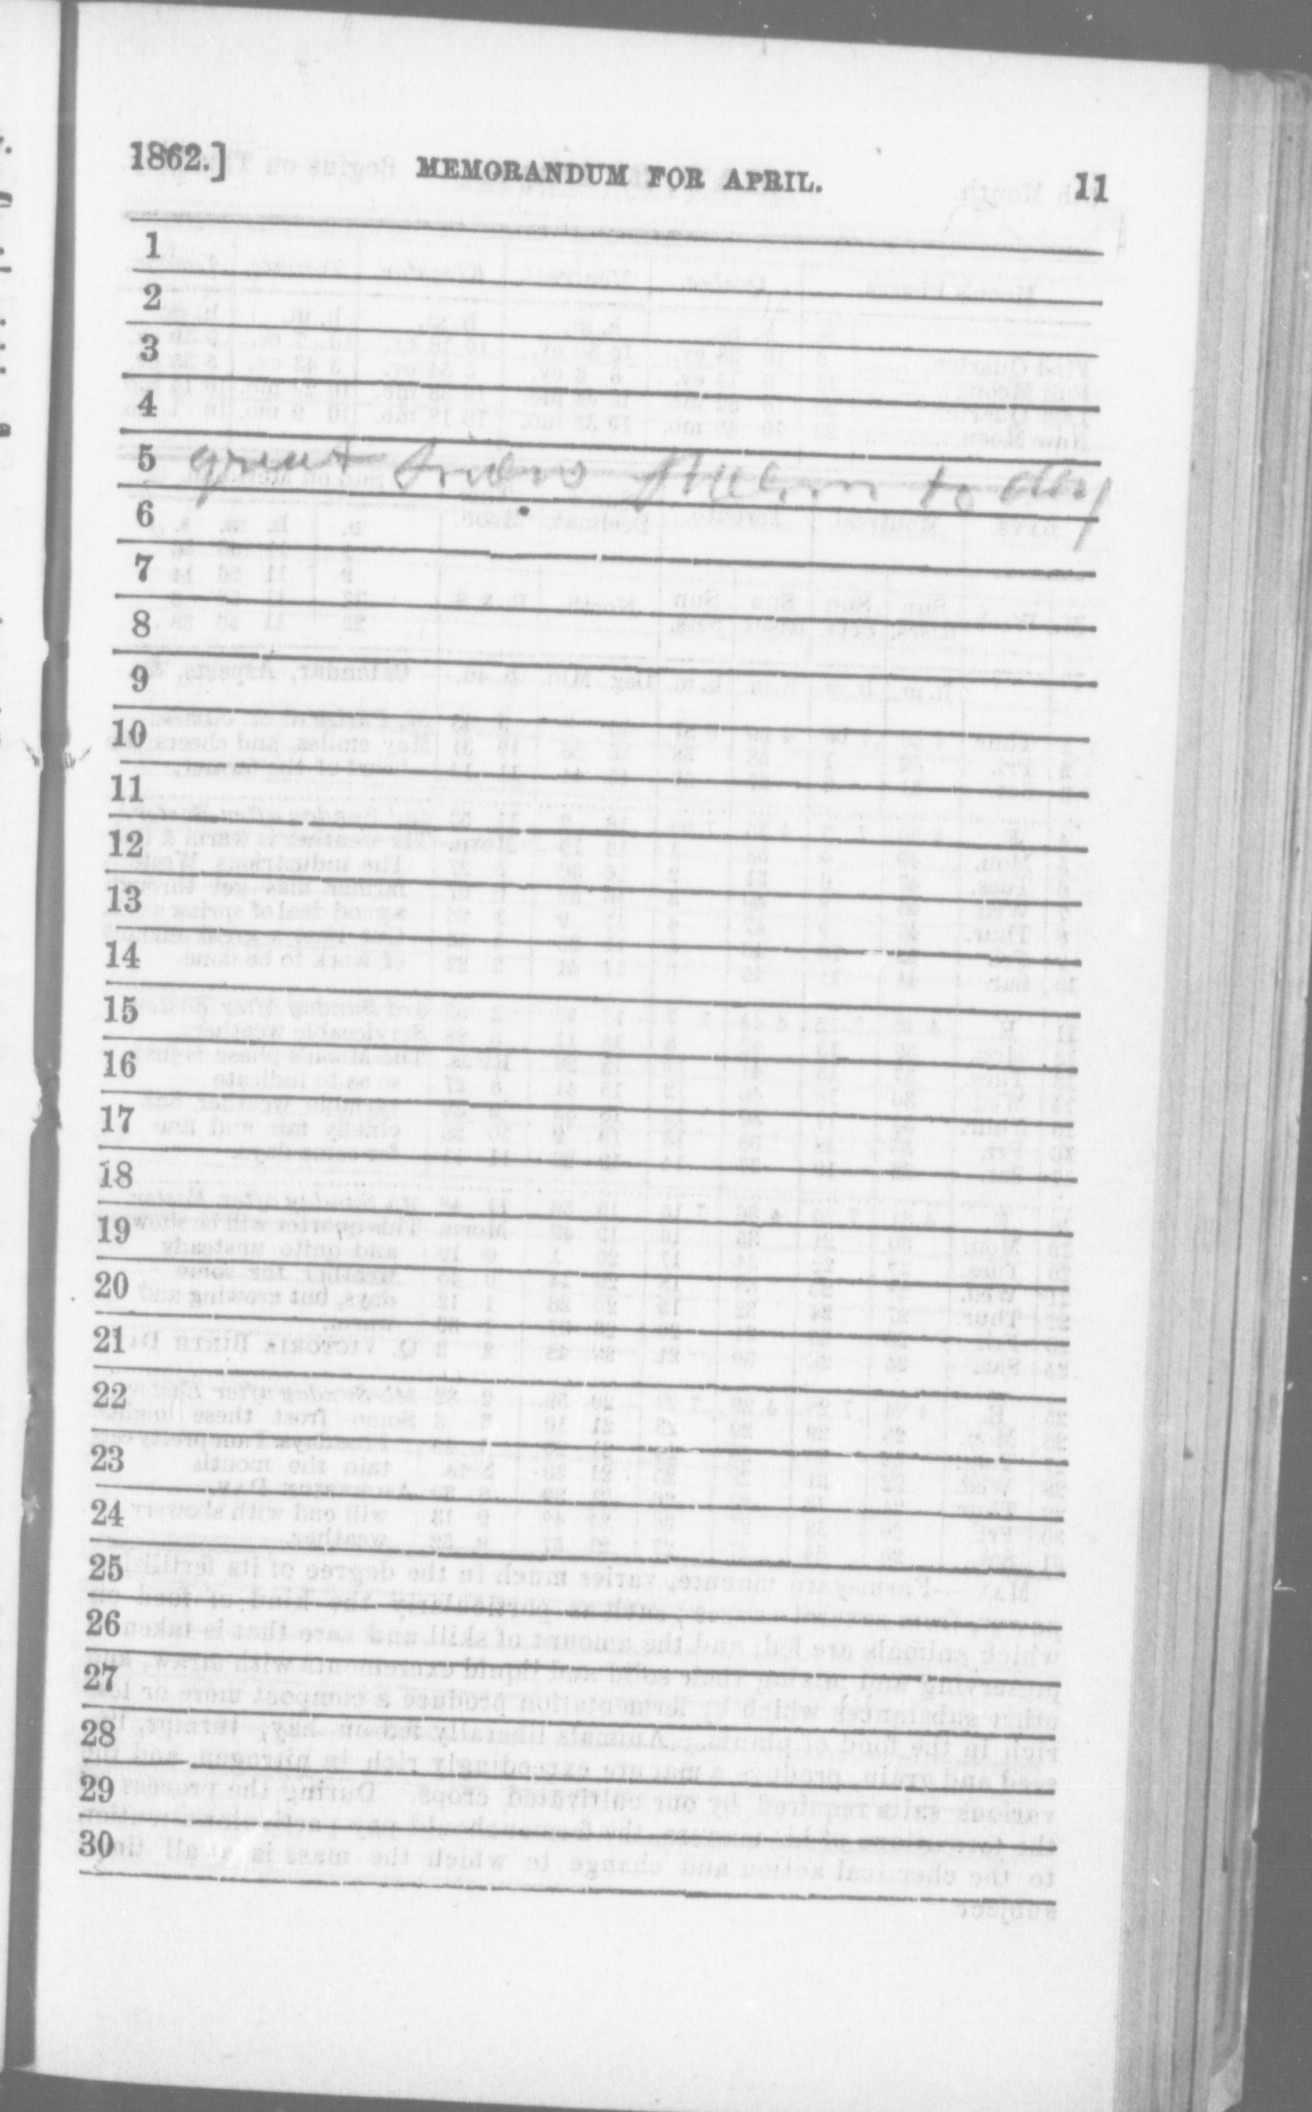 1862.] MEMORANDUM FOR APRIL. 11
1
2
3
4
5 great snow to day
6
7
8
9
10
11
12
13
14
15
16
17
18
19
20
21
22
23
24
25
26
27
28
29
30